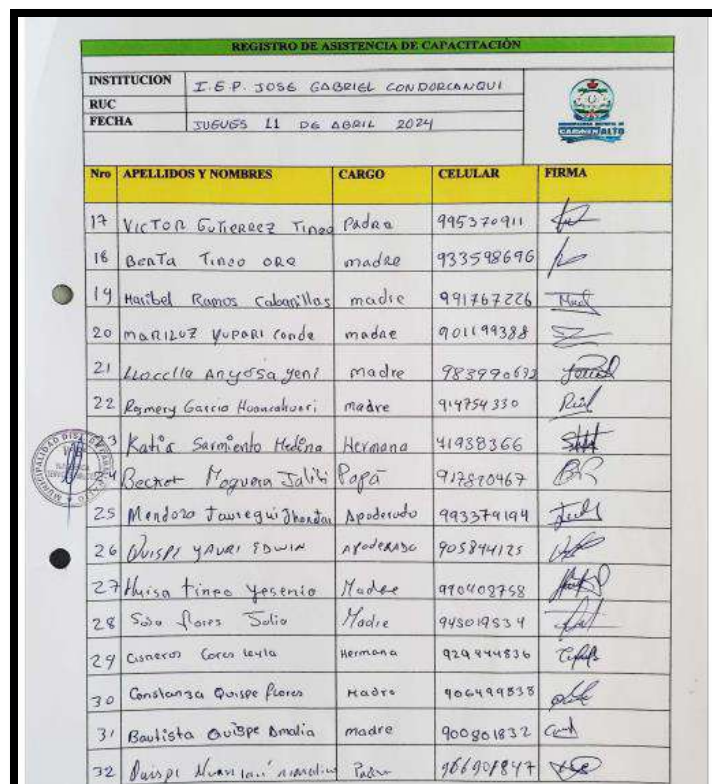 REGISTRO DE ASISTENCIA DE CAPACITACIÓN
INSTITUCION I.E.P. JOSE GABRIEL CONDORCANQUI
RUC
FECHA JUEVES 11 DE ABRIL 2024
CARMEN ALTO
Nro APELLIDOS Y NOMBRES CARGO CELULAR FIRMA
17 VICTOR GUTIERREZ Tineo Padre 995370911
18 BERTA TINEO ORE madre 933598696
19 Maribel Ramos Cabanillas madre 991767226
20 MARILUZ YUPARI Conde madre 901199388
21 Anyosa Yeni madre 983990632
22 Rosmery Garcia Huancahuari madre 914754330
23 Katia Sarmiento Medina Hermana 41938366
24 Moguera Papá 917820467
25 Mendoza Jauregui Apoderado 993379194
26 QUISPE YAURI EDWIN APODERADO 905844125
27 Huisa tineo Yesenia Madre 990402758
28 Sosa flores Julia Madre 945019534
29 Cisneros Ceres leyla Hermana 929444836
30 Constanza Quispe flores Madre 906499838
31 Bautista Quispe Amalia madre 900801832
32 Quispe 966909847